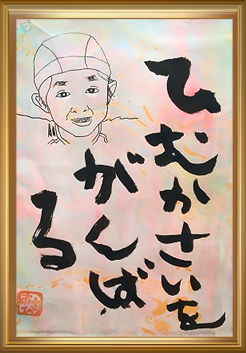 ひむかさいを
がんば
る